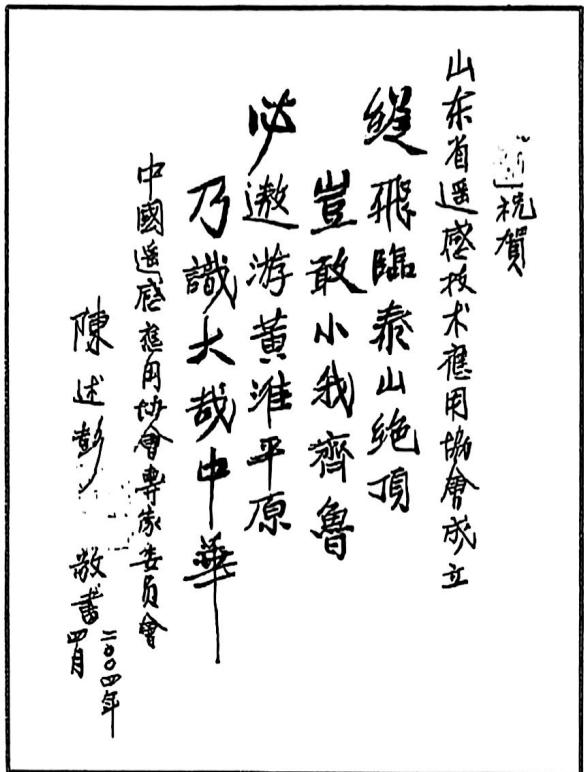 祝賀
山东省遥感技术應用協會成立
縱飛臨泰山绝頂
豈敢小我齊魯
必遨游黄淮平原
乃識大哉中華
中國遥感應用协會專家委员會
陳述彭
敬書
二〇〇四年
四月